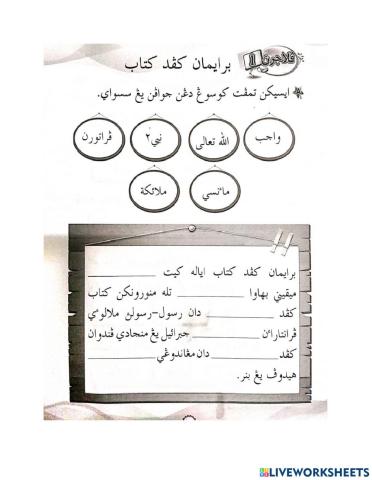 ڤلاجرن
برايمان کڤد کتاب
ايسيکن تمڤت کوسوڠ دڠن جواڤن يڠ سسواي.
واجب
الله تعالى
نبي٢
ڤراتورن
مأنسي
ملائکة
برايمان کڤد کتاب اياله کيت ____________
ميقيني بهاوا ____________ تله منورونکن کتاب
کڤد ____________ دان رسول-رسولڽ ملالوءي
ڤرانتاراءن ____________ جبرائيل يڠ منجادي ڤندوان
کڤد ____________ دان مڠاندوڠي ____________
هيدوڤ يڠ بنر.
LIVEWORKSHEETS